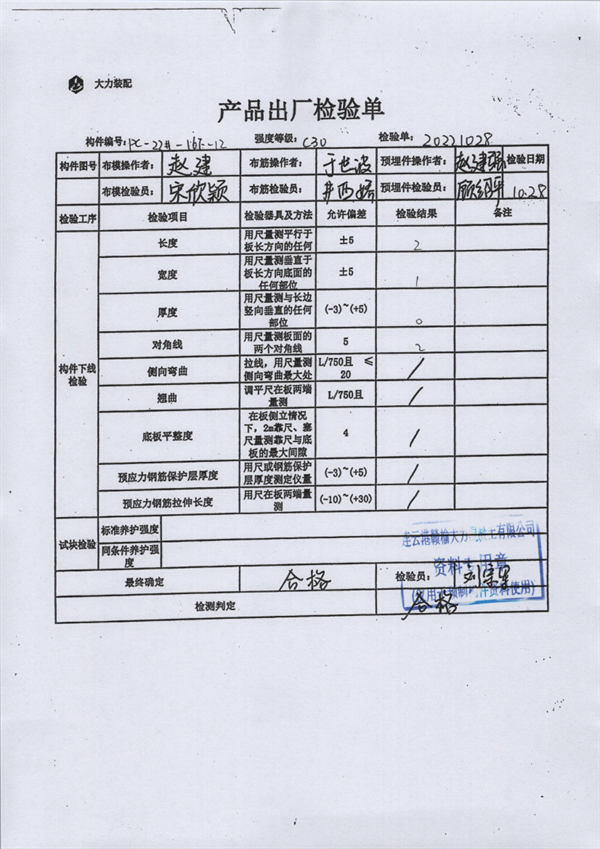 大力装配
产品出厂检验单
构件编号: PC-22#-16F-12 强度等级: C30 检验单: 20221028
构件图号 布模操作者: 赵建 布筋操作者: 于世波 预埋件操作者: 赵建 检验日期
布模检验员: 宋欣颖 布筋检验员: 预埋件检验员: 10.28
检验工序 检验项目 检验器具及方法 允许偏差 检验结果 备注
构件下线检验
长度 用尺量测平行于板长方向的任何 ±5 2
宽度 用尺量测垂直于板长方向底面的任何部位 ±5 1
厚度 用尺量测与长边竖向垂直的任何部位 (-3)~(+5) 0
对角线 用尺量测板面的两个对角线 5 2
侧向弯曲 拉线，用尺量测侧向弯曲最大处 L/750且 ≤20 /
翘曲 调平尺在板两端量测 L/750且 /
底板平整度 在板侧立情况下，2m靠尺、塞尺量测靠尺与底板的最大间隙 4 /
预应力钢筋保护层厚度 用尺或钢筋保护层厚度测定仪量 (-3)~(+5) /
预应力钢筋拉伸长度 用尺在板两端量测 (-10)~(+30) /
试块检验 标准养护强度
同条件养护强度
连云港赣榆大力 工有限公司
资料 用章
最终确定 合格 检验员: 刘
检测判定 合格